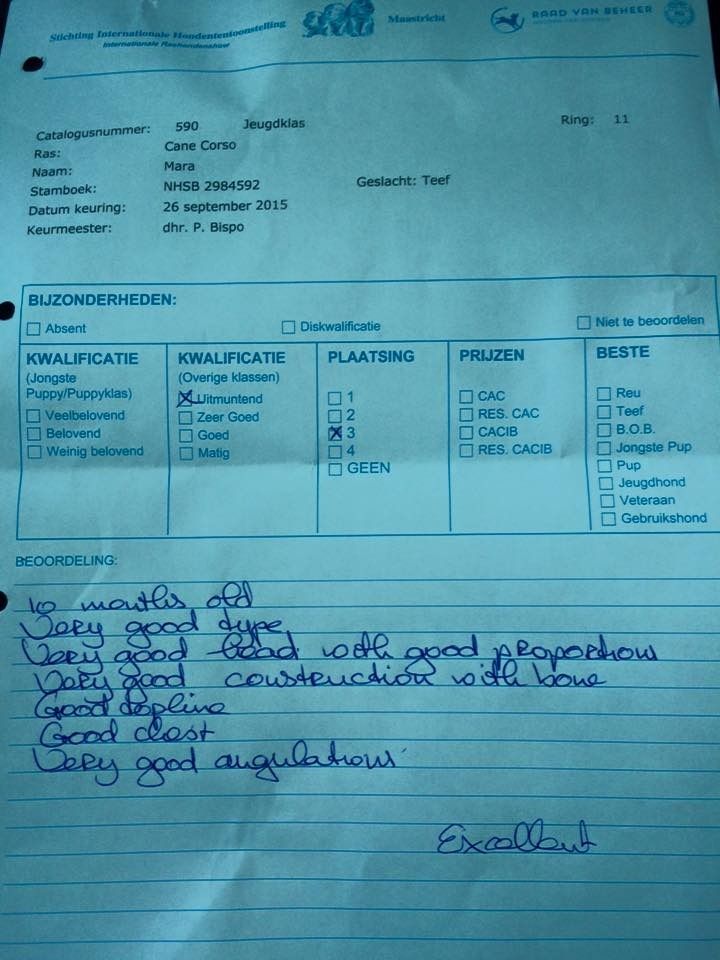 Stichting Internationale Hondententoonstelling Maastricht RAAD VAN BEHEER
Internationale Rashondenshow
Catalogusnummer: 590 Jeugdklas Ring: 11
Ras: Cane Corso
Naam: Mara
Stamboek: NHSB 2984592 Geslacht: Teef
Datum keuring: 26 september 2015
Keurmeester: dhr. P. Bispo
BIJZONDERHEDEN:
Absent Diskwalificatie Niet te beoordelen
KWALIFICATIE
(Jongste
Puppy/Puppyklas)
Veelbelovend
Belovend
Weinig belovend
KWALIFICATIE
(Overige klassen)
Uitmuntend
Zeer Goed
Goed
Matig
PLAATSING
1
2
3
4
GEEN
PRIJZEN
CAC
RES. CAC
CACIB
RES. CACIB
BESTE
Reu
Teef
B.O.B.
Jongste Pup
Pup
Jeugdhond
Veteraan
Gebruikshond
BEOORDELING:
10 months old
Very good type
Very good head with good proportions
Very good construction with bone
Good topline
Good chest
Very good angulations
Excellent